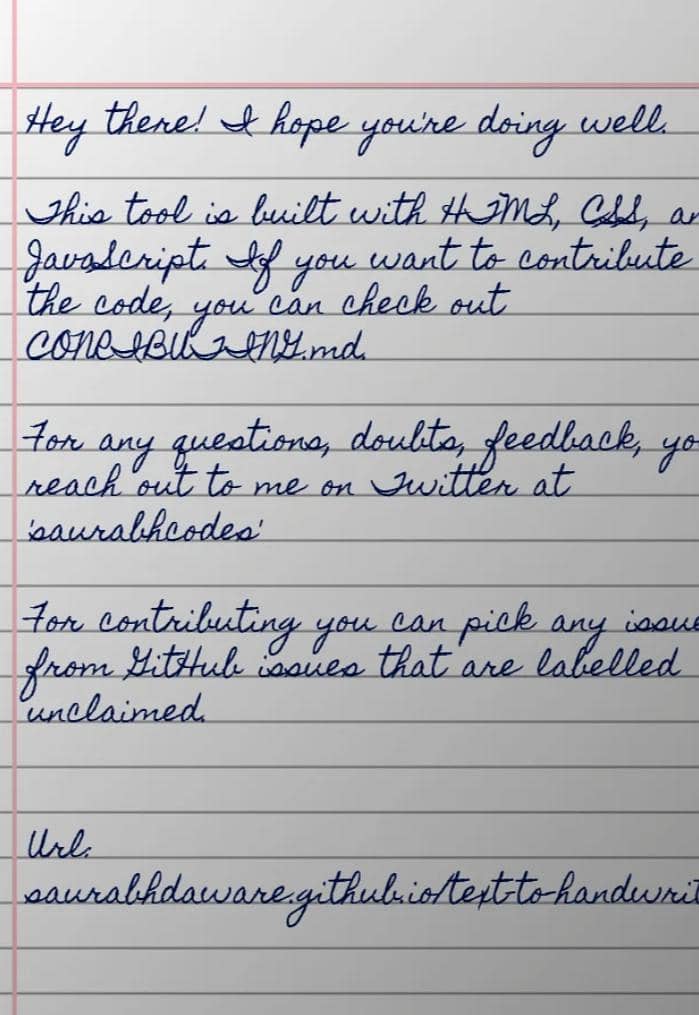 Hey there! I hope you're doing well.
This tool is built with HTML, CSS, an
JavaScript. If you want to contribute
the code, you can check out
CONRIBUTING.md.
For any questions, doubts, feedback, yo
reach out to me on Twitter at
'saurabhcodes'
For contributing you can pick any issue
from GitHub issues that are labelled
unclaimed.
Url:
saurabhdaware.github.io/text-to-handwrit